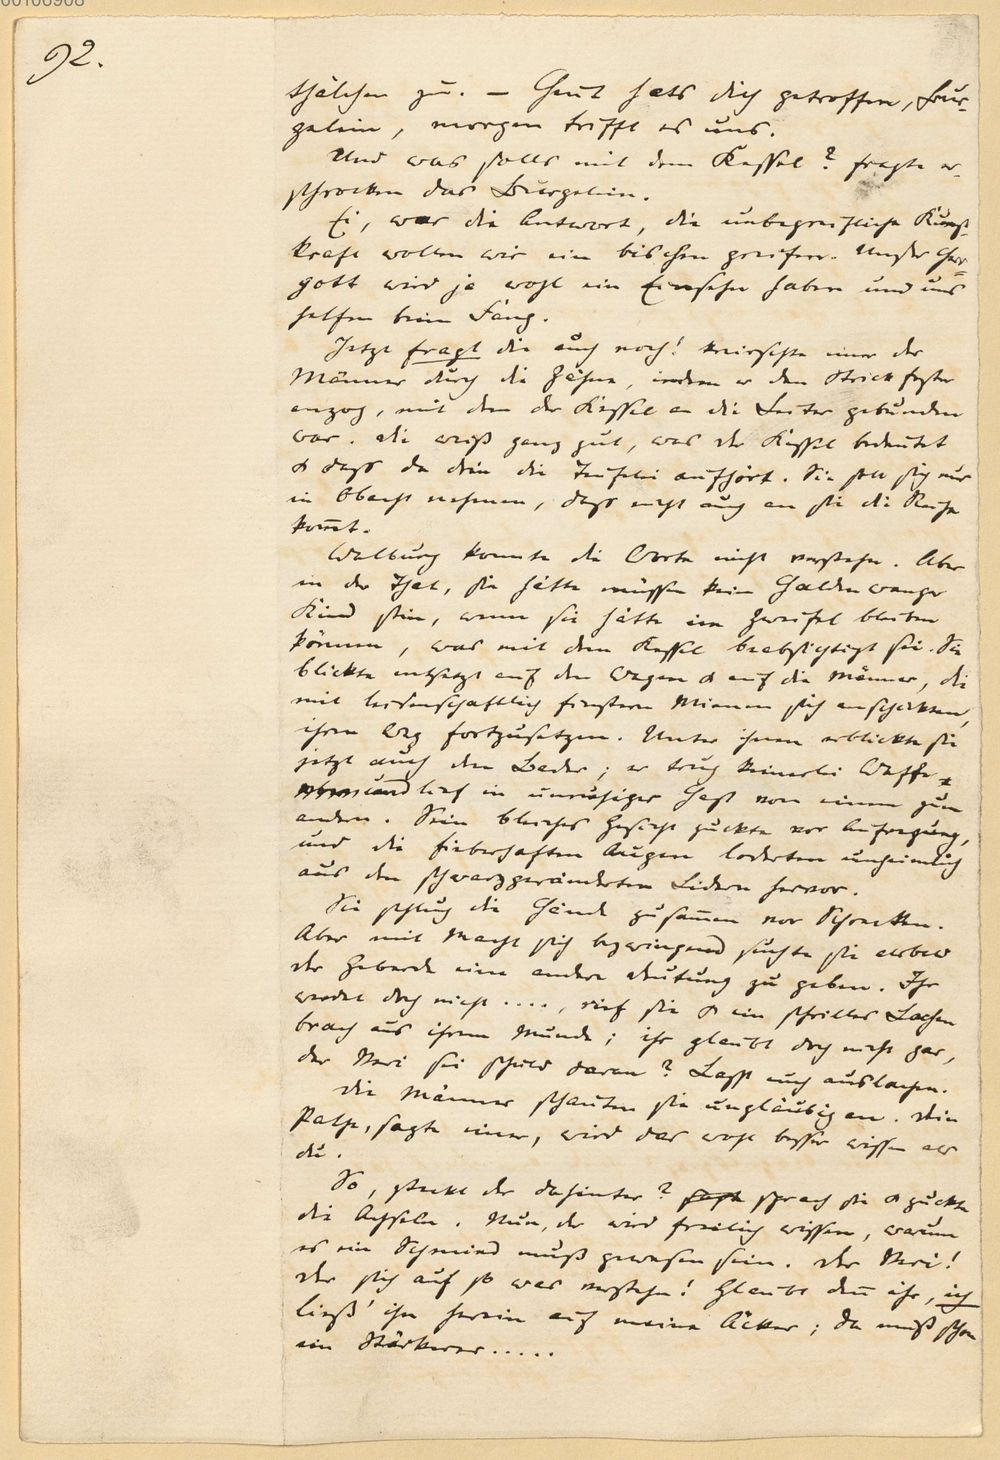 00106908
92.
thälchen zu. – Heut hats dich getroffen, Bur-
gelein, morgen trifft es uns.
Und was solls mit dem Kessel? fragte er-
schrocken das Burgelein.
Ei, war die Antwort, die unbegreifliche Kunst-
kraft wollen wir ein bischen greifen. Unser Herr-
gott wird ja wohl ein Einsehn haben und uns
helfen beim Fang.
Jetzt fragt die auch noch! knirschte einer der
Männer durch die Zähne, indem er den Strick fester
anzog, mit dem der Kessel an die Leiter gebunden
war. Die weiß ganz gut, was der Kessel bedeutet
& dass da drin die Teufelei aufhört. Sie soll sich nur
in Obacht nehmen, dass nicht auch an sie die Reihe
kommt.
Walburg konnte die Worte nicht verstehn. Aber
in der That, sie hätte müssen kein Haldenwanger
Kind sein, wenn sie hätte im Zweifel bleiben
können, was mit dem Kessel beabsichtigt sei. Sie
blickte entsetzt auf den Wagen & auf die Männer, die
mit leidenschaftlich finstern Mienen sich anschickten,
ihren Weg fortzusetzen. Unter ihnen erblickte sie
jetzt auch den Bader; er trug keinerlei Waffe &
und lief in unruhiger Hast von einem zum
andern. Sein bleiches Gesicht zuckte vor Aufregung,
und die fieberhaften Augen loderten unheimlich
aus den schwarzgeränderten Lidern hervor.
Sie schlug die Hände zusammen vor Schrecken.
Aber mit Macht sich bezwingend suchte sie
der Geberde eine andere Deutung zu geben. Ihr
werdet doch nicht ...., rief sie & ein schrilles Lachen
brach aus ihrem Munde; ihr glaubt doch nicht gar,
der Veri sei schuld daran? Lasst euch auslachen.
Die Männer schauten sie ungläubig an. Dein
Pathe, sagte einer, wird das wohl besser wissen als
du.
So, steckt der dahinter? sprach sie & zuckte
die Achseln. Nun, der wird freilich wissen, warum
es ein Schmied muß gewesen sein. Der Veri!
Der sich auf so was verstehn! Glaubt denn ihr, ich
ließ' ihn herein auf meine Äcker; da muß schon
ein Stärkerer.....